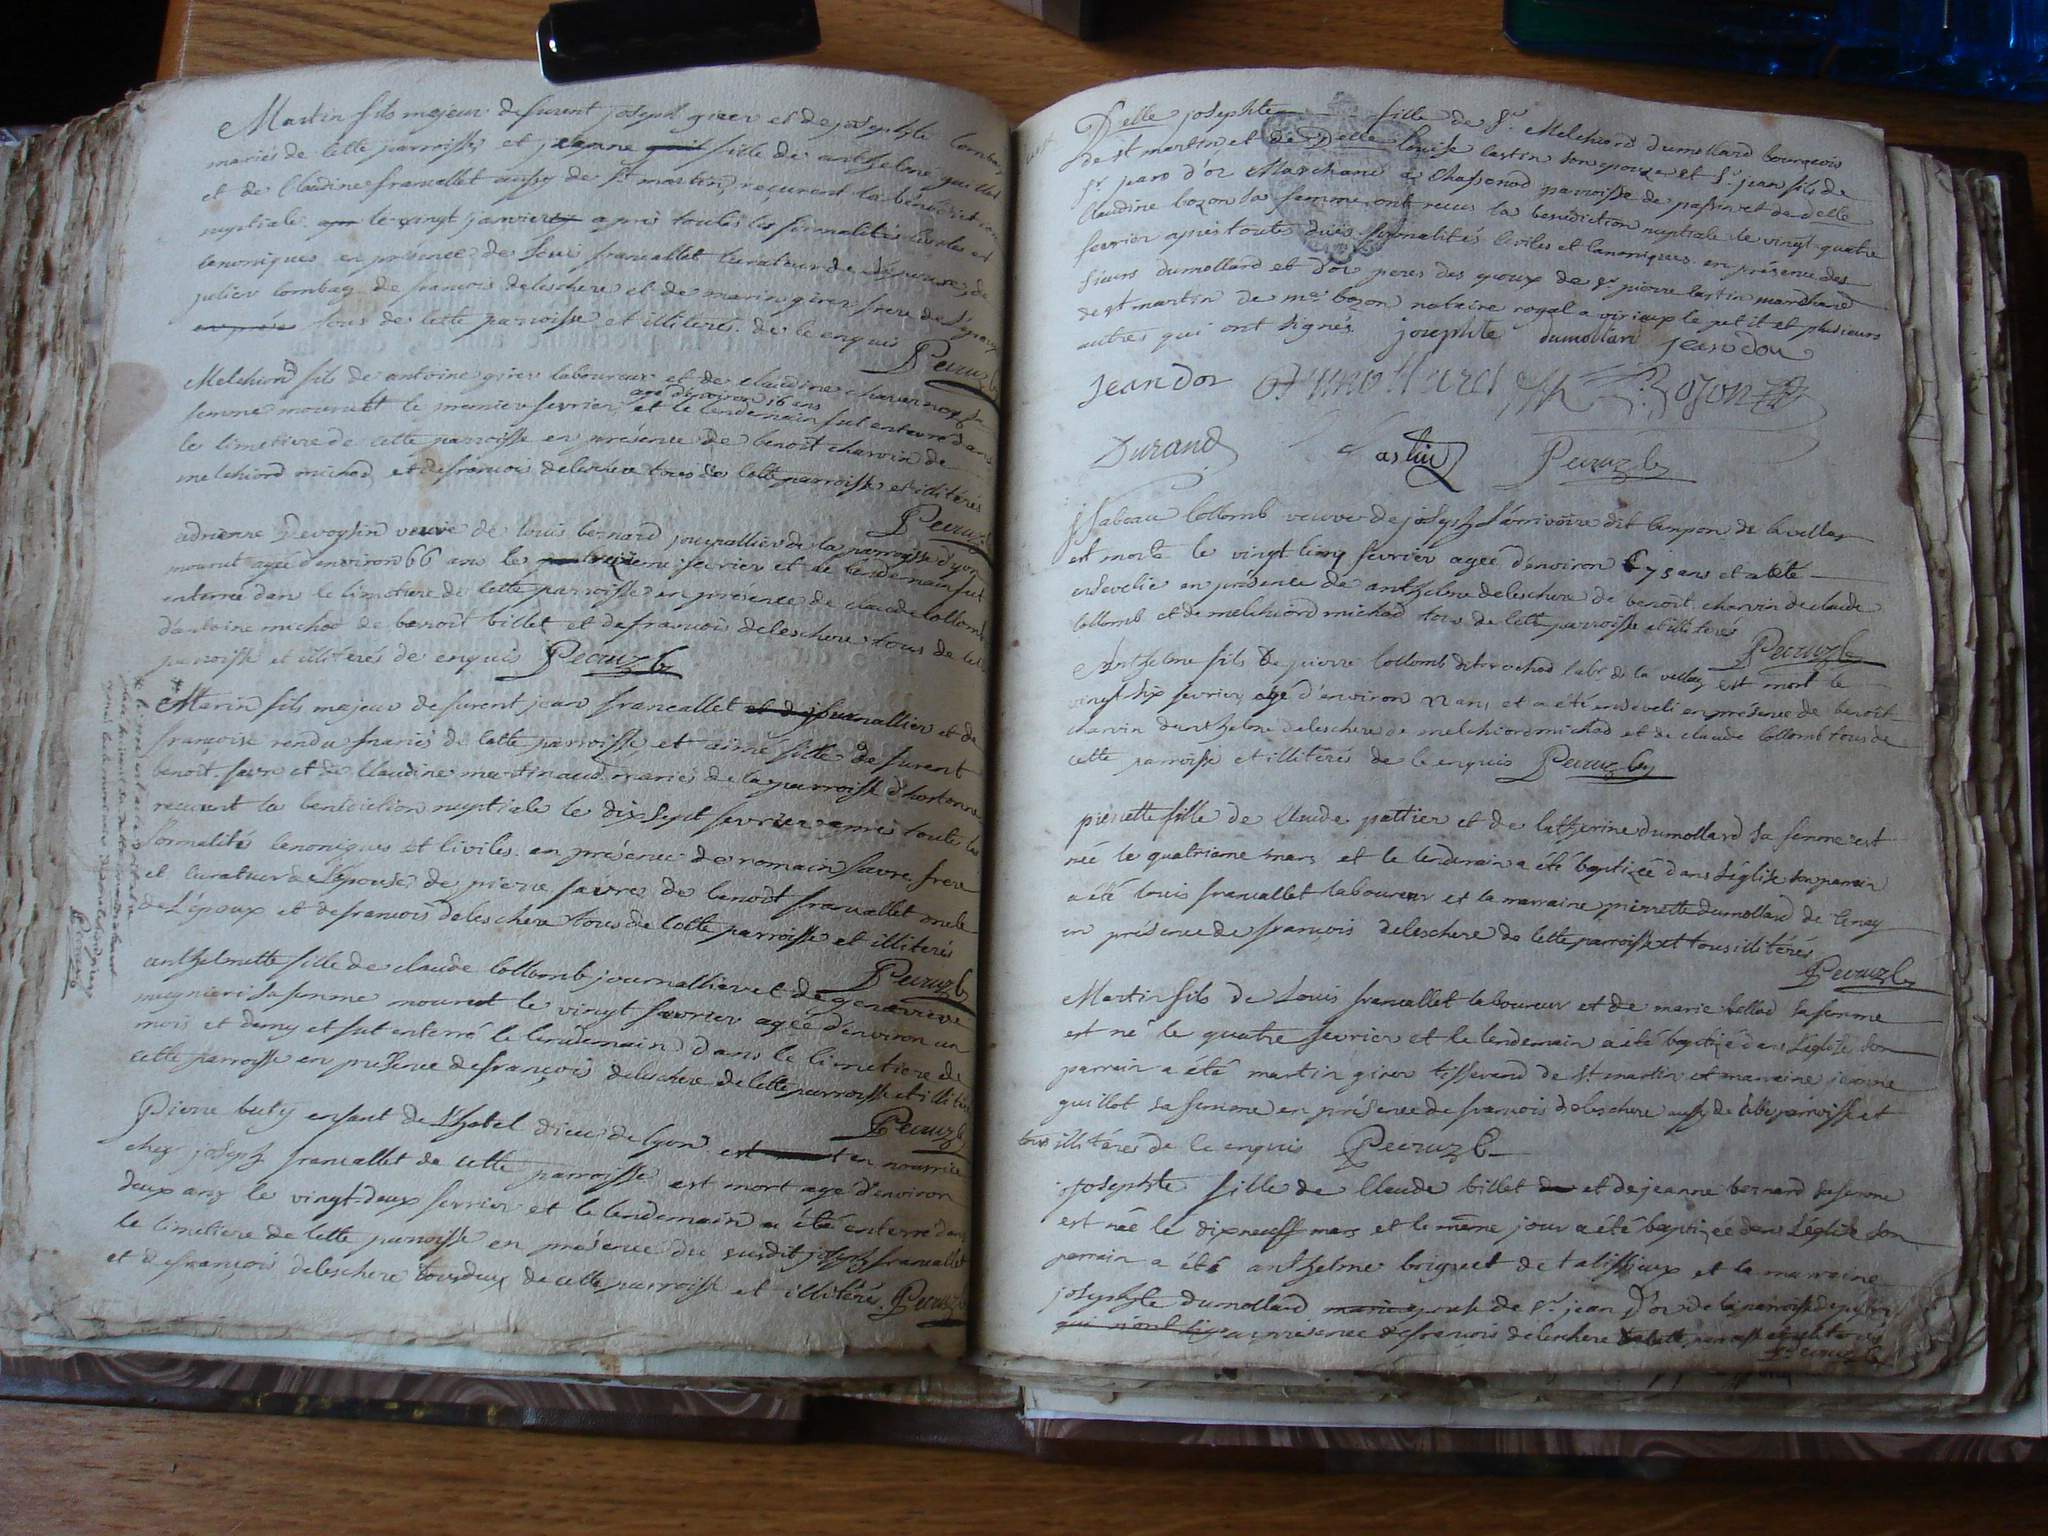 Martin fils majeur de furent joseph girer et de josephte Combaz
mariés de cette parroisse et jeanne fille de anthelme guillot
et de Claudine francallet aussy de st martin, reçurent la bénédiction
nuptiale le vingt janvier après toutes les formalités civiles et
canoniques en présence de francallet curateur de l'épouse, de
julien Combaz de francois delescherе et de marin girer frere de l'époux
tous de cette parroisse et illiterés de ce enquis Pecruz c
Melchiord fils de antoine girer laboureur et de claudine charven sa
agé denviron 16 ans
femme mourut le premier fevrier et le lendemain fut enterré dans
le cimetiere de cette parroisse en présence de benoit charvin de
melchiord michod et de francois deleschere tous de cette parroisse et illiterés
Pecruz c
adrienne Devoyssin veuve de louis bernard journallier de la parroisse d'yon
mourut agée d'environ 66 ans le treizieme fevrier et le lendemain fut
enterrée dans le cimetiere de cette parroisse en présence de claude collomb
d'antoine michod de benoît billet et de francois deleschere tous de cette
parroisse et illiterés de ce enquis Pecruz c
Marin fils majeur de furent jean francallet et de
francoise rendu mariés de cette parroisse et aimé fille de furent
benoit favre et de Claudine martinaud mariés de la parroisse d'hostonne
reçurent la bénédiction nuptiale le dix sept fevrier après toute les
formalités cenoniques et civiles en présence de romain favre frere
et curateur de l'épouse, de pierre favre de benoît francallet oncle
de l'époux et de francois deleschere tous de cette parroisse et illiterés
Pecruz c
anthelmette fille de claude Collomb journallier et de genevieve
mugnier sa femme mourut le vingt fevrier agée d'environ un
mois et demy et fut enterré le lendemain dans le cimetiere de
cette parroisse en présence de françois deleschere de cette parroisse et illiteré
Pecruz c
Pierre buty enfant de l'hotel dieu de lyon en nourrice
chez joseph francallet de cette parroisse est mort agé d'environ
deux ans le vingt-deux fevrier et le lendemain a été enterré dans
le cimetiere de cette parroisse en présence du susdit joseph francallet
et de françois deleschere tous deux de cette parroisse et illiterés. Pecruz c
Delle josephte fille de Sr Melchiord dumollard bourgeois
de st martin et de Delle louise castin son epouse et Sr jean fils de
Sr jean d'or Marchand a Chassonod parroisse de passin et de delle
Claudine bozon sa femme ont reçus la benediction nuptiale le vingt quatre
fevrier après toute dües formalités civiles et canoniques en présence des
sieurs dumollard et d'or peres des epoux de Sr pierre castin marchand
de st martin de me bozon notaire royal a virieux le petit et plusieurs
autres qui ont signés josephte dumollard jean dor
Jean dor Bozon
Durand Castin Pecruz c
jsabeau Collomb veuve de joseph dit de la vellaz
est morte le vingt cinq fevrier agée d'environ 75 ans et a eté
ensevelie en présence de anthelme deleschere de benoît charvin de claude
Collomb et de melchiord michod tous de cette parroisse et illiterés
Pecruz c
Anthelme fils de pierre Collomb dit labr de la vellaz est mort le
vingt six fevrier agé d'environ 22 ans et a été enseveli en présence de benoit
charvin d'anthelme deleschere de melchiord michod et de claude Collomb tous de
cette parroisse et illiterés de ce enquis Pecruz c
pierrette fille de Claude pattier et de Catherine dumollard sa femme est
née le quatrieme mars et le lendemain a été baptizée dans l'église son parrain
a été louis francallet laboureur et la marraine pierrette dumollard de Cenay
en présence de françois deleschere de cette parroisse et tous illitérés
Pecruz c
Martin fils de Louis francallet laboureur et de marie bellod sa femme
est né le quatre fevrier et le lendemain a été baptizé dans l'église son
parrain a été martin girer tisserand de st martin et marraine jeanne
guillot sa femme en présence de francois deleschere aussy de cette parroisse et
tous illitérés de ce enquis Pecruz c
josephte fille de Claude billet et de jeanne bernard sa femme
est née le dix neuff mars et le même jour a été baptizée dans l'église son
parrain a été anthelme briguet de talissieux et la marraine
josephte dumollard epouse de Sr jean D'or de la parroisse de passin
en présence de francois deleschere de cette parroisse illiterés
Pecruz c